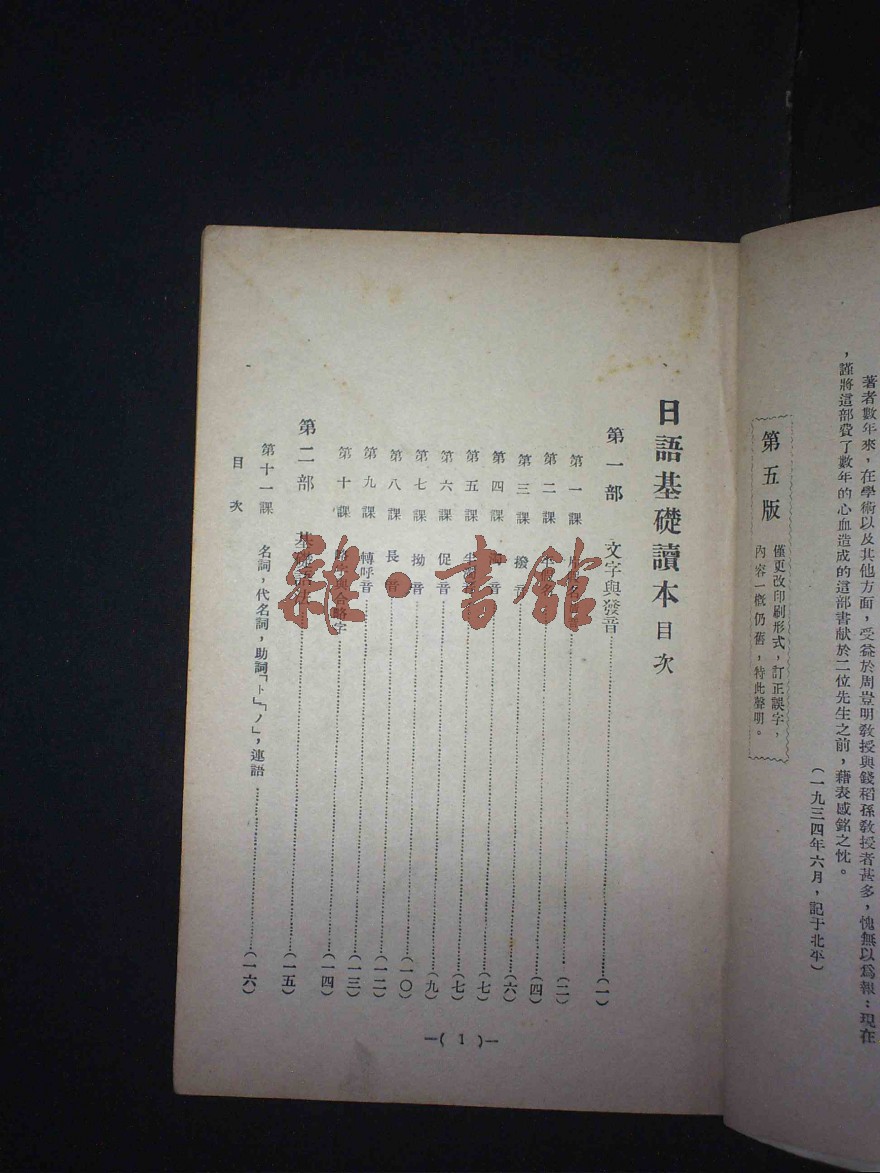 著者數年來，在學術以及其他方面，受益於周豈明教授與錢稻孫教授者甚多，愧無以爲報：現在
，謹將這部費了數年的心血造成的這部書献於二位先生之前，藉表感銘之忱。
(一九三四年六月，記于北平)
第五版
僅更改印刷形式，訂正誤字，
內容一概仍舊，特此聲明。
日語基礎讀本目次
第一部 文字與發音 (一)
第一課 (二)
第二課 (四)
第三課 撥音 (六)
第四課 音 (七)
第五課 (七)
第六課 促音 (九)
第七課 拗音 (一〇)
第八課 長音 (一二)
第九課 轉呼音 (一三)
第十課 略字與合略字 (一四)
第二部 基礎語法 (一五)
第十一課 名詞，代名詞，助詞「ト」「ノ」，連語 (一六)
目次
—( 1 )—
雜·書館